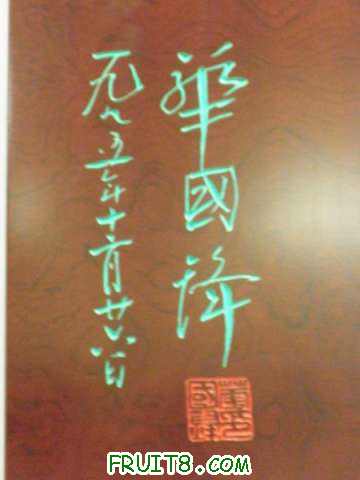 華國鋒
一九九五年十二月廿六日
FRUIT8.COM